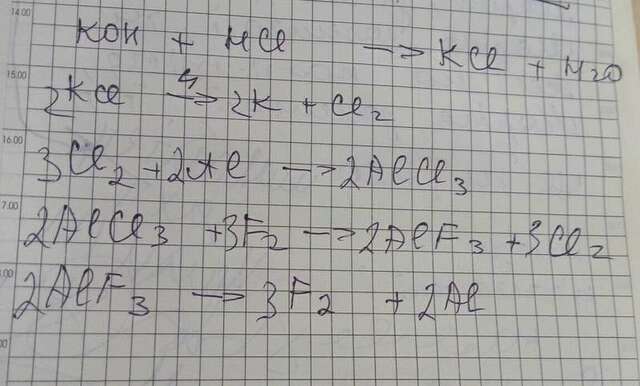 14.00
KOH + HCl → KCl + H2O
15.00
2KCl ϟ→ 2K + Cl2
16.00
3Cl2 + 2Al → 2AlCl3
7.00
2AlCl3 + 3F2 → 2AlF3 + 3Cl2
.00
2AlF3 → 3F2 + 2Al
00